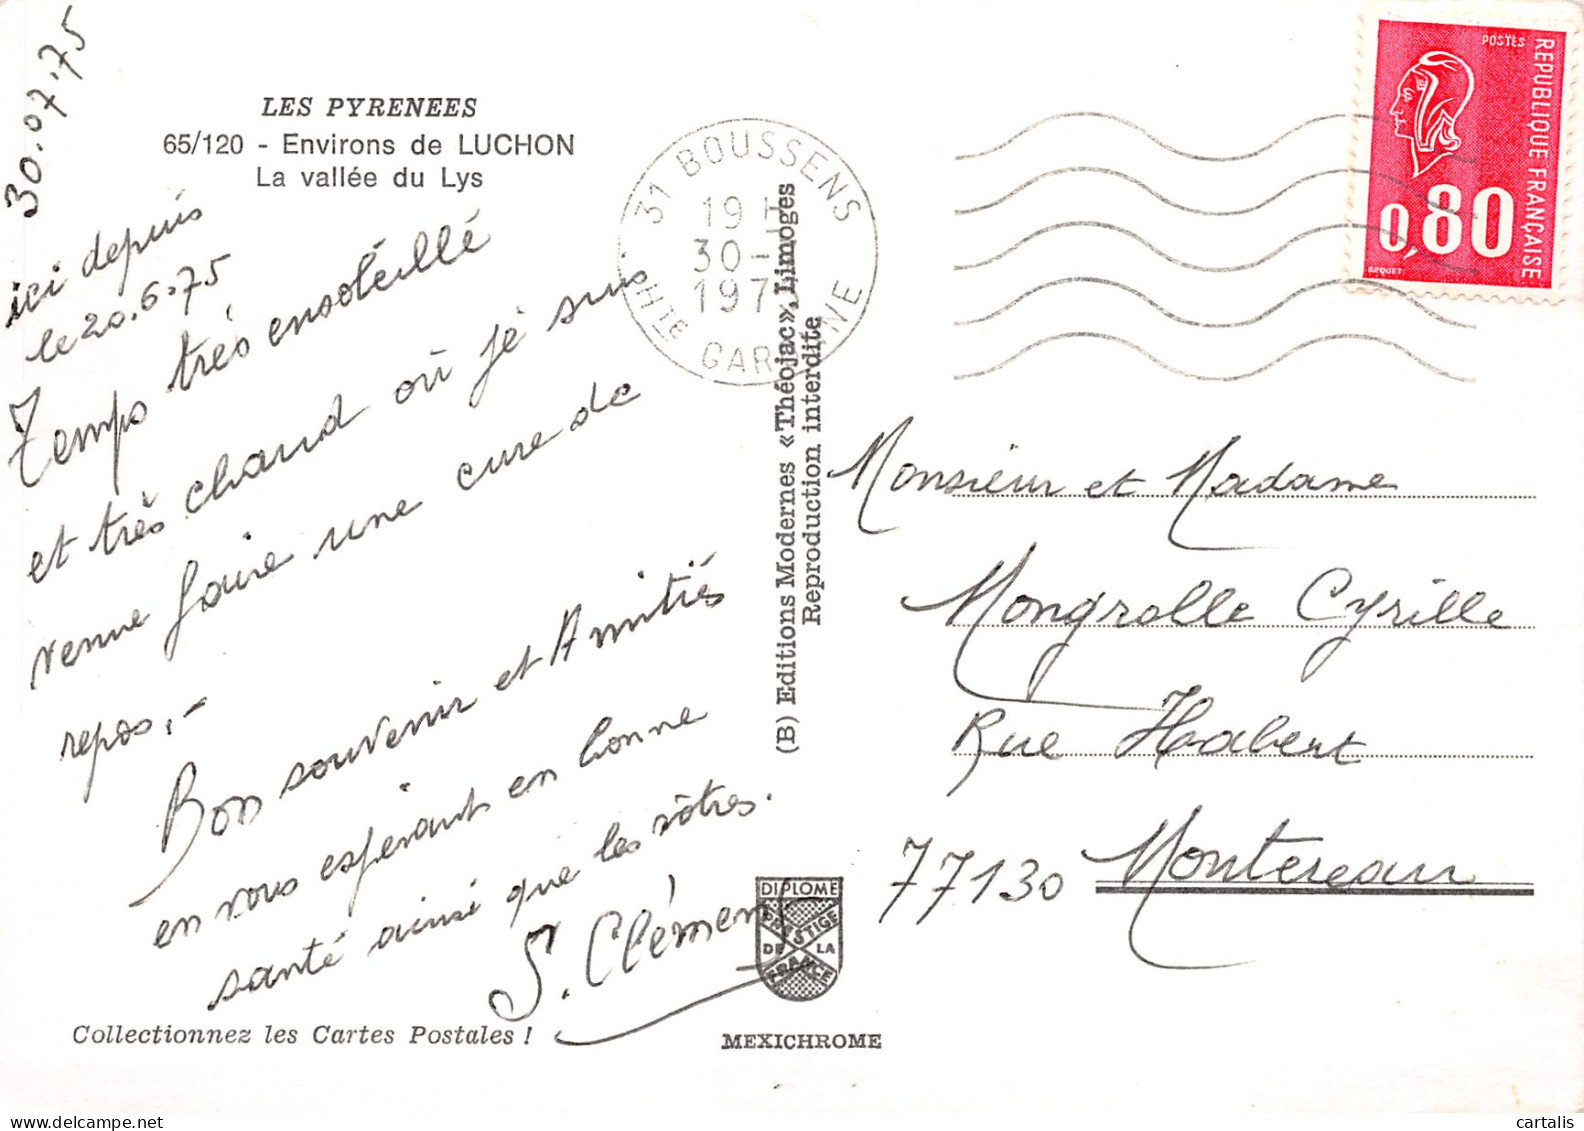 30.07.75
LES PYRENEES
65/120 - Environs de LUCHON
La vallée du Lys
ici depuis
le 20.6.75
Temps très ensoleillé
et très chaud où je suis
venue faire une cure de
repos.-
Bon souvenir et Amitiés
en vous espérant en bonne
santé ainsi que les vôtres.
S. Clément
Collectionnez les Cartes Postales !
31 BOUSSENS
19 H
30 -
197
Hte GARONNE
(B) Editions Modernes «Théojac», Limoges
Reproduction interdite
DIPLOME
PRESTIGE
DE LA
FRANCE
MEXICHROME
POSTES
REPUBLIQUE FRANÇAISE
0,80
BEQUET
Monsieur et Madame
Mongrolle Cyrille
Rue Habert
77130 Montereau
cartalis